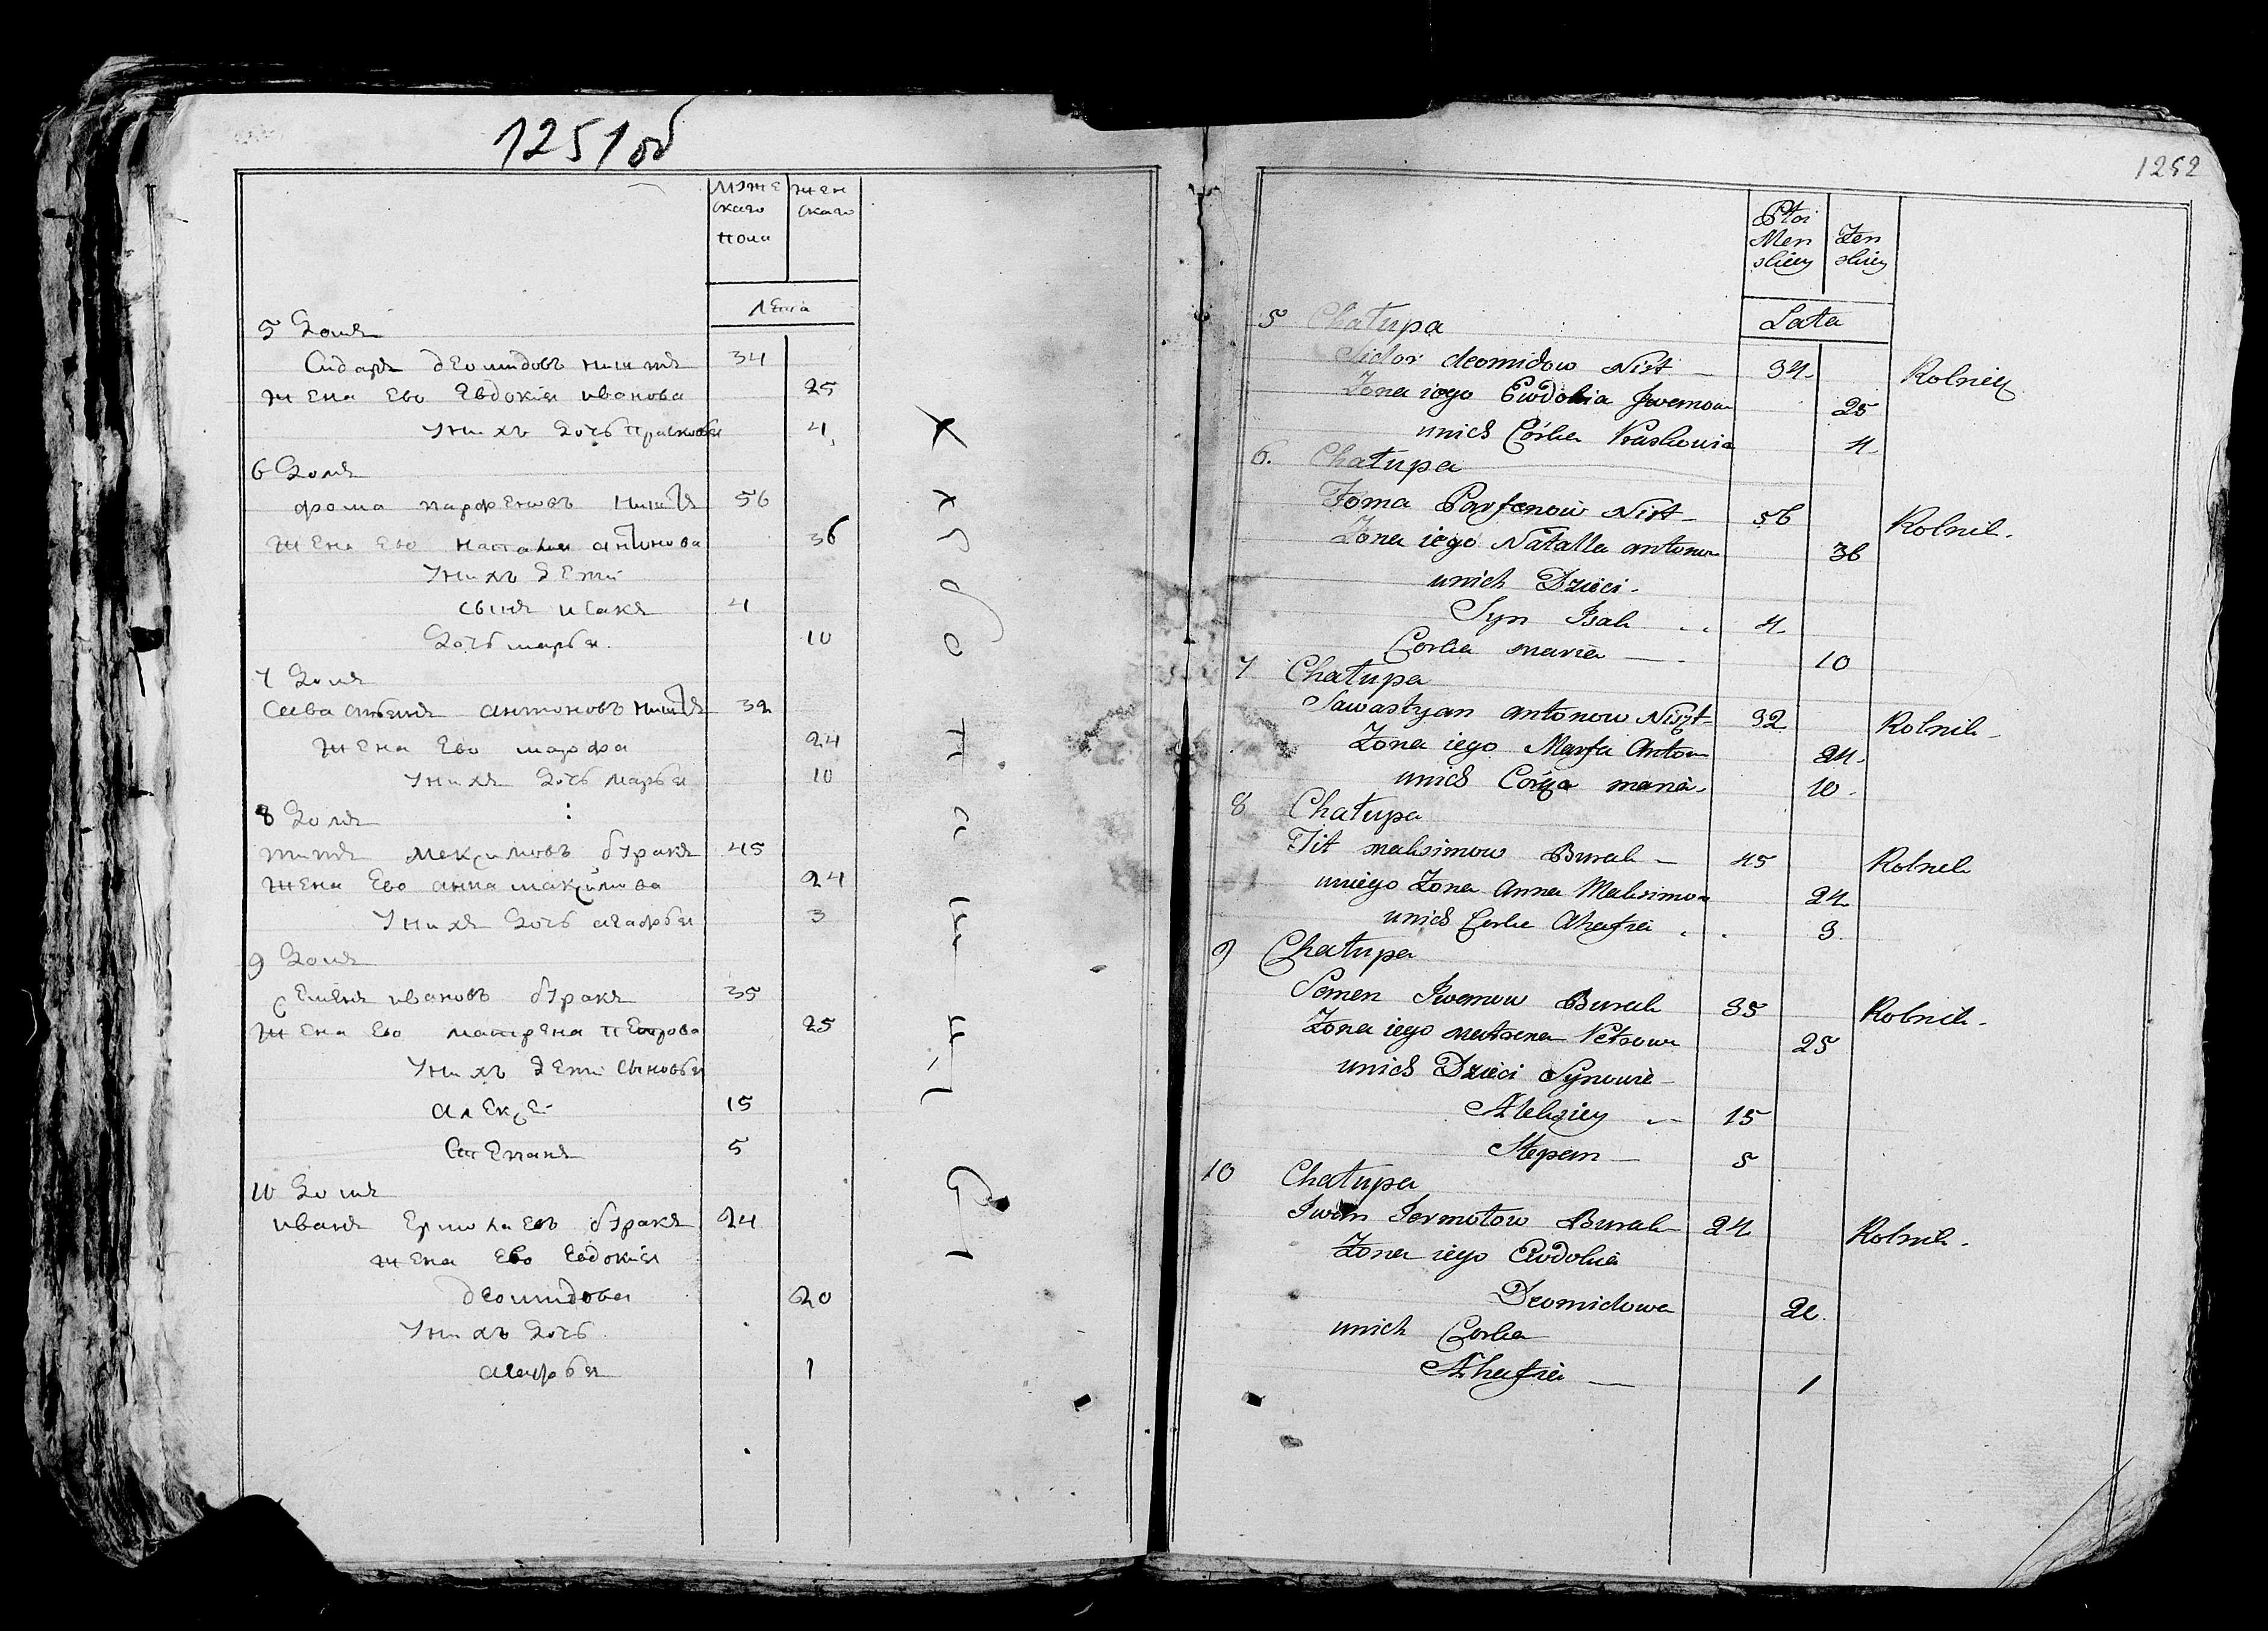 1251 об
мэже
скаго
пола
жен
скаго
лета
5 Домъ
Сидаръ деомидовъ ништъ 34
жена ево Евдокия иванова 25
у нихъ дочь прасковья 4
6 Домъ
фома парфеновъ ништъ 56
жена ево наталия антонова 36
у нихъ дети
сынъ исакъ 4
дочь марья 10
7 Домъ
Савастьянъ антоновъ ништъ 32
жена ево марфа 24
у нихъ дочь марья 10
8 Домъ
титъ максимовъ буракъ 45
жена ево анна максимова 24
у нихъ дочь агафья 3
9 Домъ
семенъ ивановъ буракъ 35
жена ево матрена петрова 25
у нихъ дети сыновьи
алексе 15
Степанъ 5
10 Домъ
иванъ ермолаевъ буракъ 24
жена ево Евдокия
деомидова 20
у нихъ дочь
агафья 1
1252
Płci
Men
skiey
Żen
skiey
Lata
5 Chałupa
Sidor deomidow Niszt 34 Rolniey
Żona iego Ewdokia Iwanow 25
unich Córka Praskowia 4
6. Chałupa
Foma Parfenow Niszt 56 Rolnik
Żona iego Natalla antonow 36
unich Dzieci
Syn Isak 4
Corka maria 10
7 Chałupa
Sawastyan antonow Niszt 32 Rolnik
Żona iego Marfa Antow 24
unich Córka maria 10
8 Chałupa
Tit maksimow Burak 45 Rolnik
uniego Żona Anna Maksimow 24
unich Corka Ahafia 3
9 Chałupa
Semen Iwanow Burak 35 Rolnik
Żona iego matrena Petrowa 25
unich Dzieci Synowie
Aleksiey 15
Stepan 5
10 Chałupa
Iwan Jermołow Burak 24 Rolnik
Żona iego Ewdokia
Deomidowa 20
unich Corka
Ahafia 1